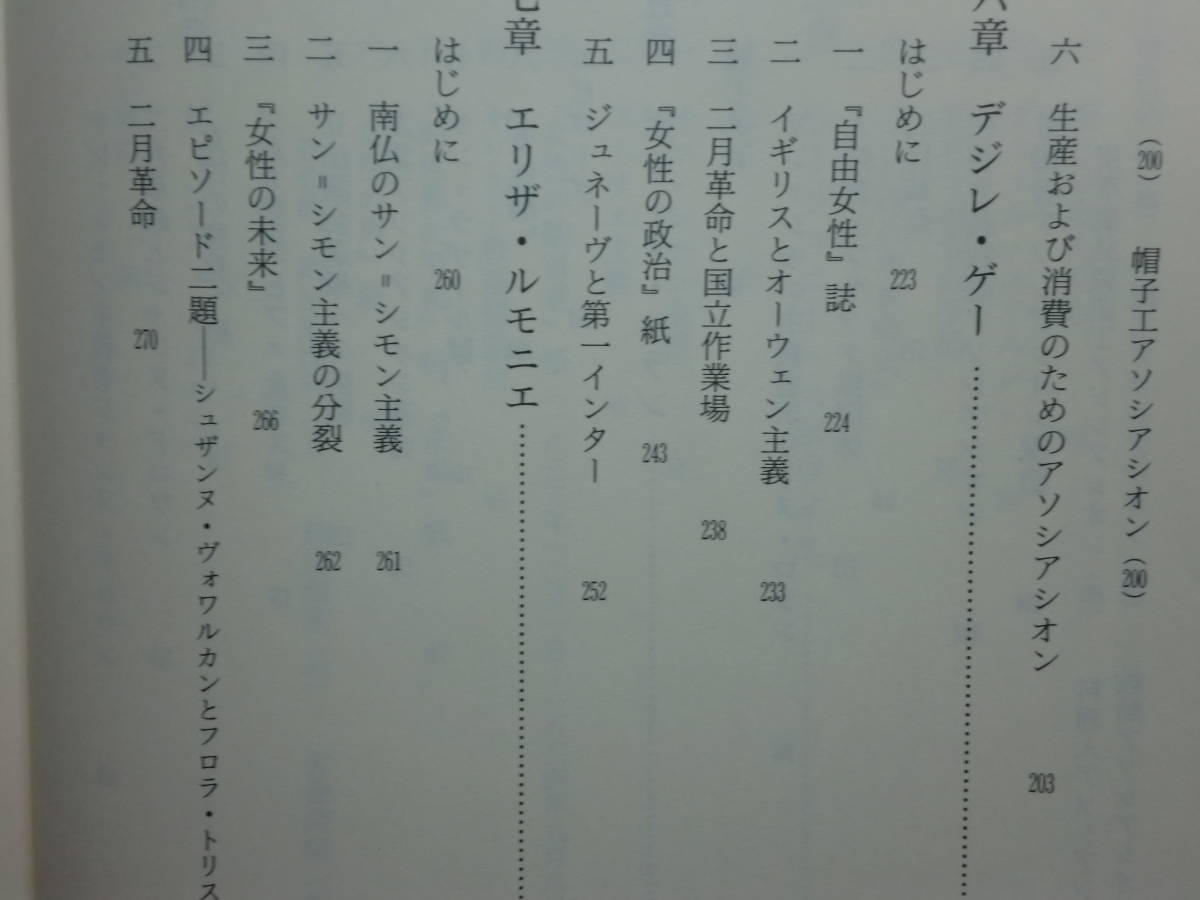 (200) 帽子工アソシアシオン (200)
六 生産および消費のためのアソシアシオン 203
六章 デジレ・ゲー……………………
はじめに 223
一 『自由女性』誌 224
二 イギリスとオーウェン主義 233
三 二月革命と国立作業場 238
四 『女性の政治』紙 243
五 ジュネーヴと第一インター 252
七章 エリザ・ルモニエ……………………
はじめに 260
一 南仏のサン゠シモン主義 261
二 サン゠シモン主義の分裂 262
三 『女性の未来』 266
四 エピソード二題――シュザンヌ・ヴォワルカンとフロラ・トリス
五 二月革命 270